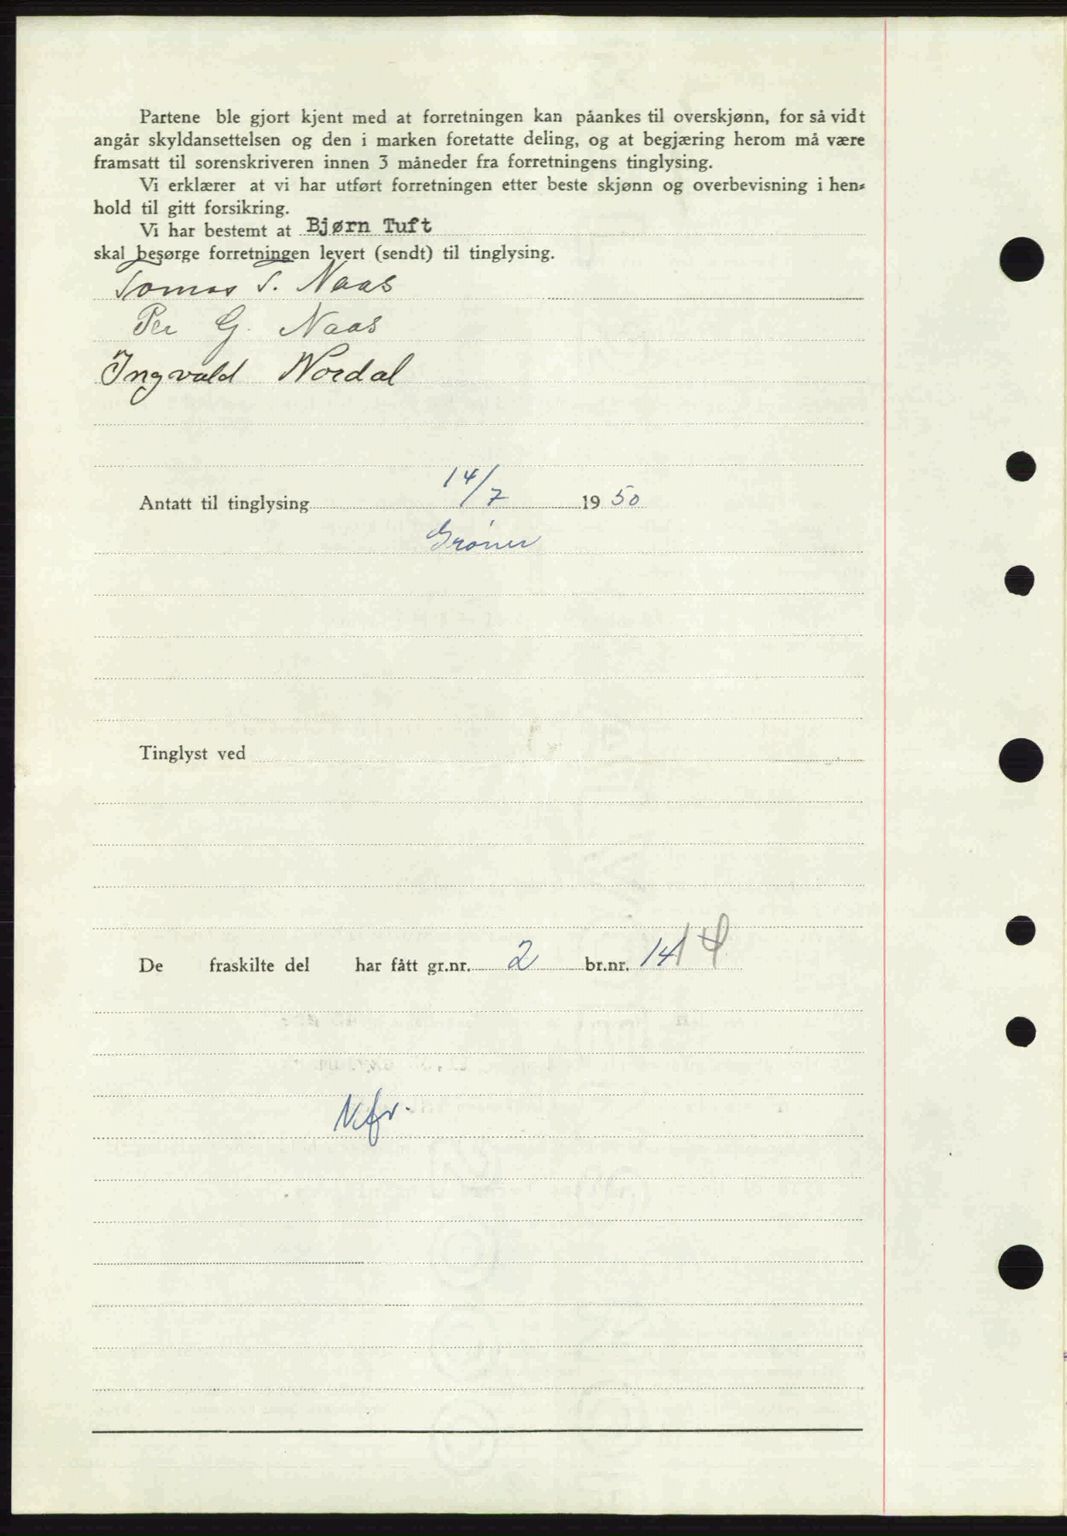 Partene ble gjort kjent med at forretningen kan påankes til overskjønn, for så vidt
angår skyldansettelsen og den i marken foretatte deling, og at begjæring herom må være
framsatt til sorenskriveren innen 3 måneder fra forretningens tinglysing.
Vi erklærer at vi har utført forretningen etter beste skjønn og overbevisning i hen-
hold til gitt forsikring.
Vi har bestemt at Bjørn Tuft
skal besørge forretningen levert (sendt) til tinglysing.
Tomas T. Naas
Per G. Naas
Ingvald Nordal
Antatt til tinglysing 14/7 1950
Grøner
Tinglyst ved
De fraskilte del har fått gr.nr. 2 br.nr. 14 14
Kfr.